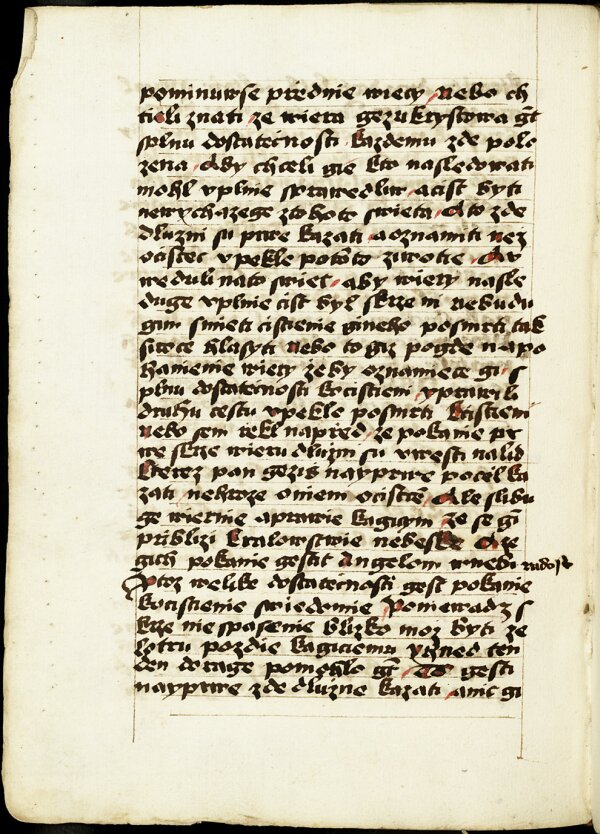 pominuwse prednie wiecy nebo ch
tieli znati ze wiera gezukrystowa gt
splnu dostatecnosti kazdemu zde polo
zena Aby chceli gie kto nasledowati
mohl vplnie sprawedliw acist byti
newychazege ztohoto swieta A to zde
dluzni su prwe kazati aoznamiti nez
ocistec vpekle pototo zuwotie Aw
weduli nato swiet aby wiery nasle
duge vplnie cist byl skrze ni nebudu
gim smieti cistienie gineho posmrti tak
siroce hlasyti nebo to giz pogde napo
hanienie wiery zeby oznamiece gi s
plnu dostatecnosti kocistiem vprawili
druhu cestu vpekle posmrti kcistiem
nebo sem rekl napred ze pokanie pr
we skrze wieru dluzni su vwesti nalid
kterez pan gezis nayprwe pocel ka
zati nebroze oniem ocistce Ale slibu
ge wiernie aprawie kagicym ze se gi
priblizi kralowstwie nebeske Aze
gich pokanie gestit Angelom wnebi radost
Protoz welike dostatecnosti gest pokanie
kocistienie swiedomie Poniewadz s
krze nie spasenie blizko moz byti ze
lotru pozdie kagiciemu yhned ten
den dorage pomohlo gt To gesti
nayprwe zde dluzne kazati anic gi